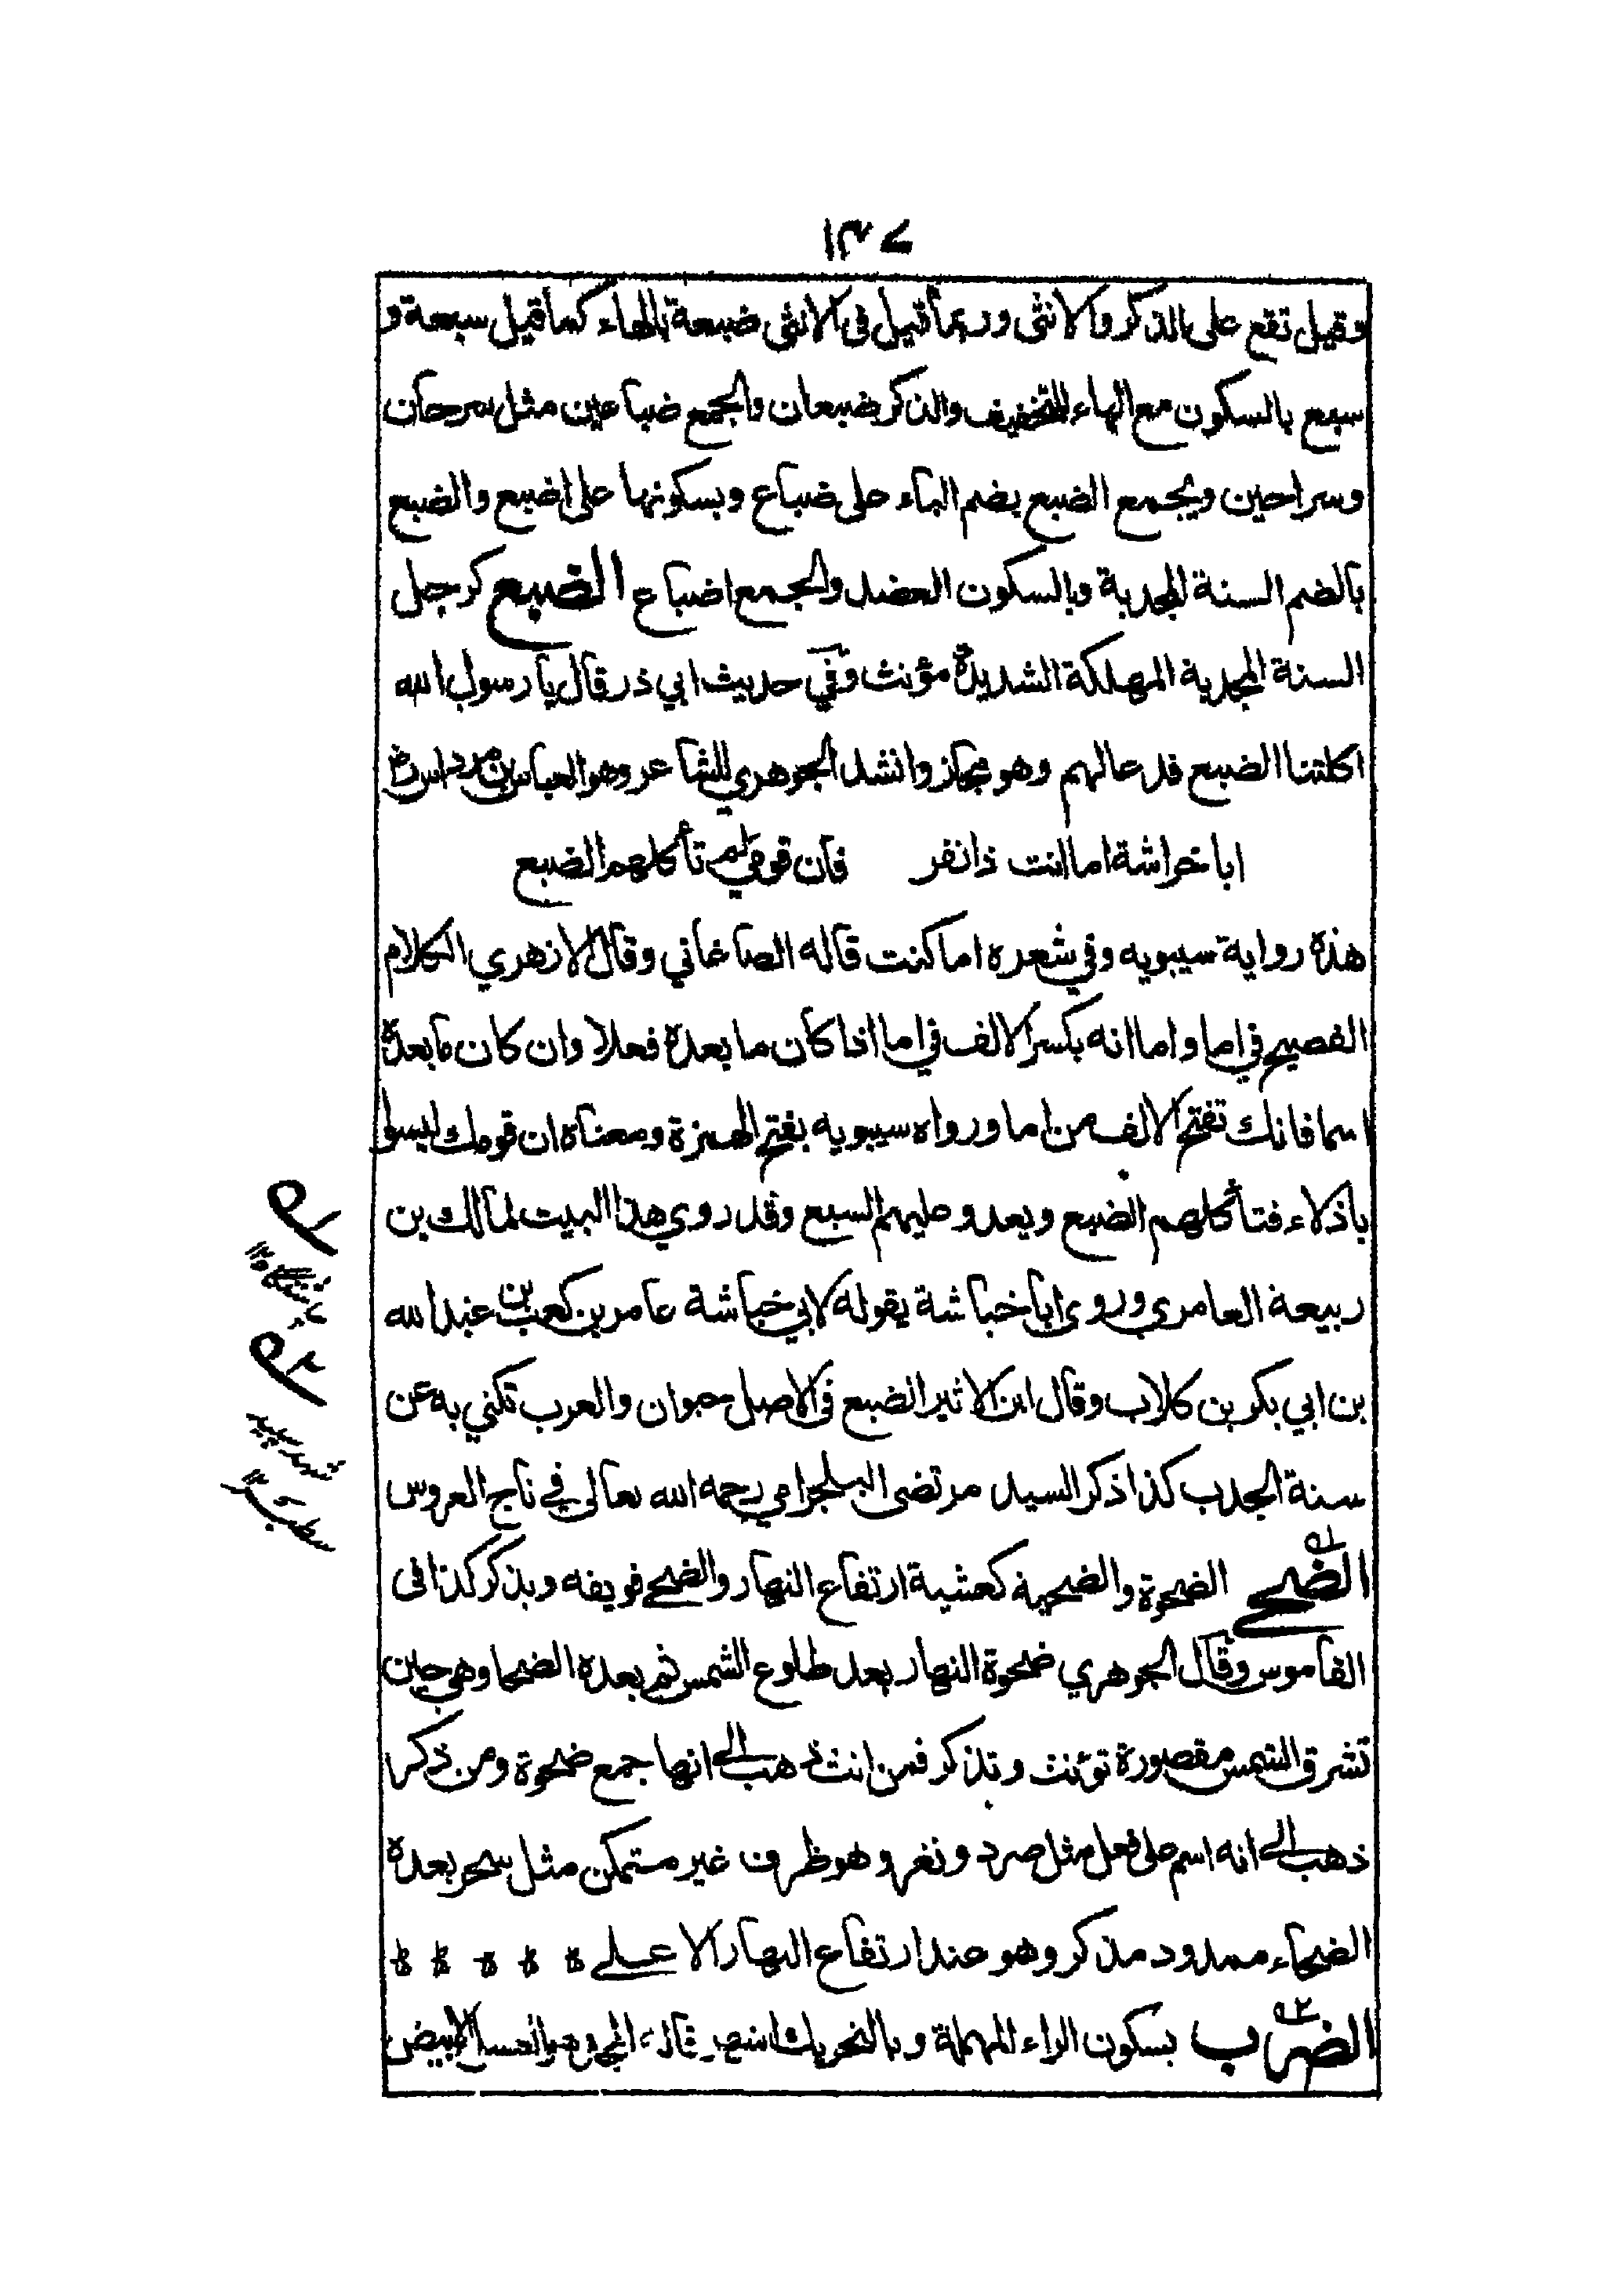 ١٣٧
وقيل تقع على الذكر والانثى وربما قيل في الانثى ضبعة بالهاء كما قيل سبعة و
سبع بالسكون مع الهاء للتخفيف والذكر ضبعان والجمع ضباعين مثل سرحان
وسراحين ويجمع الضبع بضم الباء على ضباع وبسكونها على اضبع والضبع
بالضم السنة المجدبة وبالسكون العضد والجمع اضباع الضبع كرجل
السنة المجدبة المهلكة الشديدة مؤنث وفي حديث ابي ذر قال يا رسول الله
اكلتنا الضبع فدعا لهم وهو مجاز وانشد الجوهري للشاعر وهو العباس بن مرداس رض
ابا خراشة اما انت ذا نفر فان قومي لم تأكلهم الضبع
هذه رواية سيبويه وفي شعره اما كنت قاله الصاغاني وقال الازهري الكلام
الفصيح في اما واما انه بكسر الالف في اما اذا كان ما بعده فعلا وان كان ما بعده
اسما فانك تفتح الالف من اما ورواه سيبويه بفتح الهمزة ومعناه ان قومك ليسوا
باذلاء فتأكلهم الضبع ويعدو عليهم السبع وقد روي هذا البيت لمالك بن
ربيعة العامري وروى ابا خباشة يقوله لابي خباشة عامر بن كعب بن عبد الله
بن ابي بكر بن كلاب وقال ابن الاثير الضبع في الاصل حيوان والعرب تكني به عن
سنة الجدب كذا ذكر السيد مرتضى البلجرامي رحمه الله تعالى في تاج العروس
الضحى الضحوة والضحية كعشية ارتفاع النهار والضحى فويقه ويذكر كذا في
القاموس وقال الجوهري ضحوة النهار بعد طلوع الشمس ثم بعده الضحا وهي حين
تشرق الشمس مقصورة تؤنث وتذكر فمن انث ذهب الى انها جمع ضحوة ومن ذكر
ذهب الى انه اسم على فعل مثل صرد ونغر وهو ظرف غير متمكن مثل سحر بعده
الضحاء ممدود مذكر وهو عند ارتفاع النهار الاعلى
الضرب بسكون الراء المهملة وبالتحريك العسل الابيض